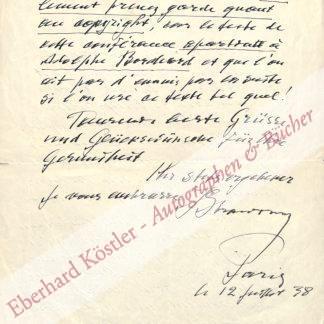 lement prenez garde quant
au copyright, car le texte de
cette conférence appartient à
et que l'on
ait pas d'ennuis par la suite
si l'on use ce texte tel quel!
Tausend beste Grüsse
und Glückwünsche für die
Gesundheit
Ihr stets ergebener
Je vous embrasse
Paris
le 12 juillet 38
Eberhard Köstler - Autographen & Bücher